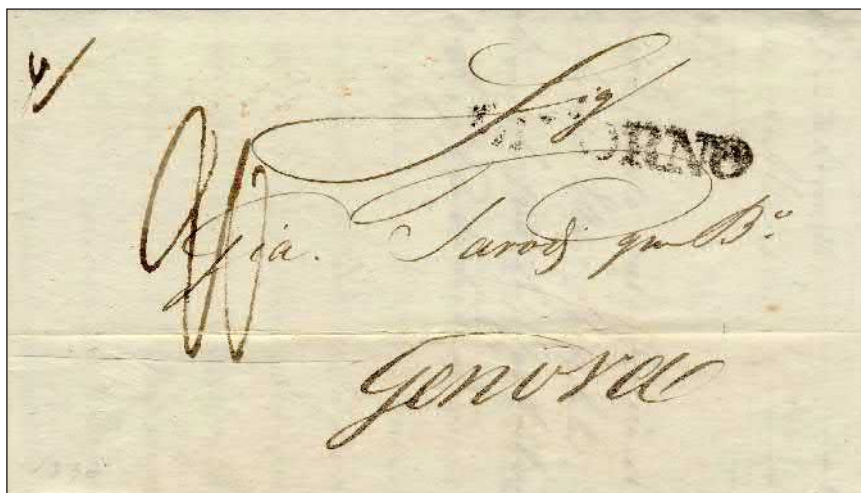 Sig
LIVORNO
Gia. Parodi qm. B.o
Genova